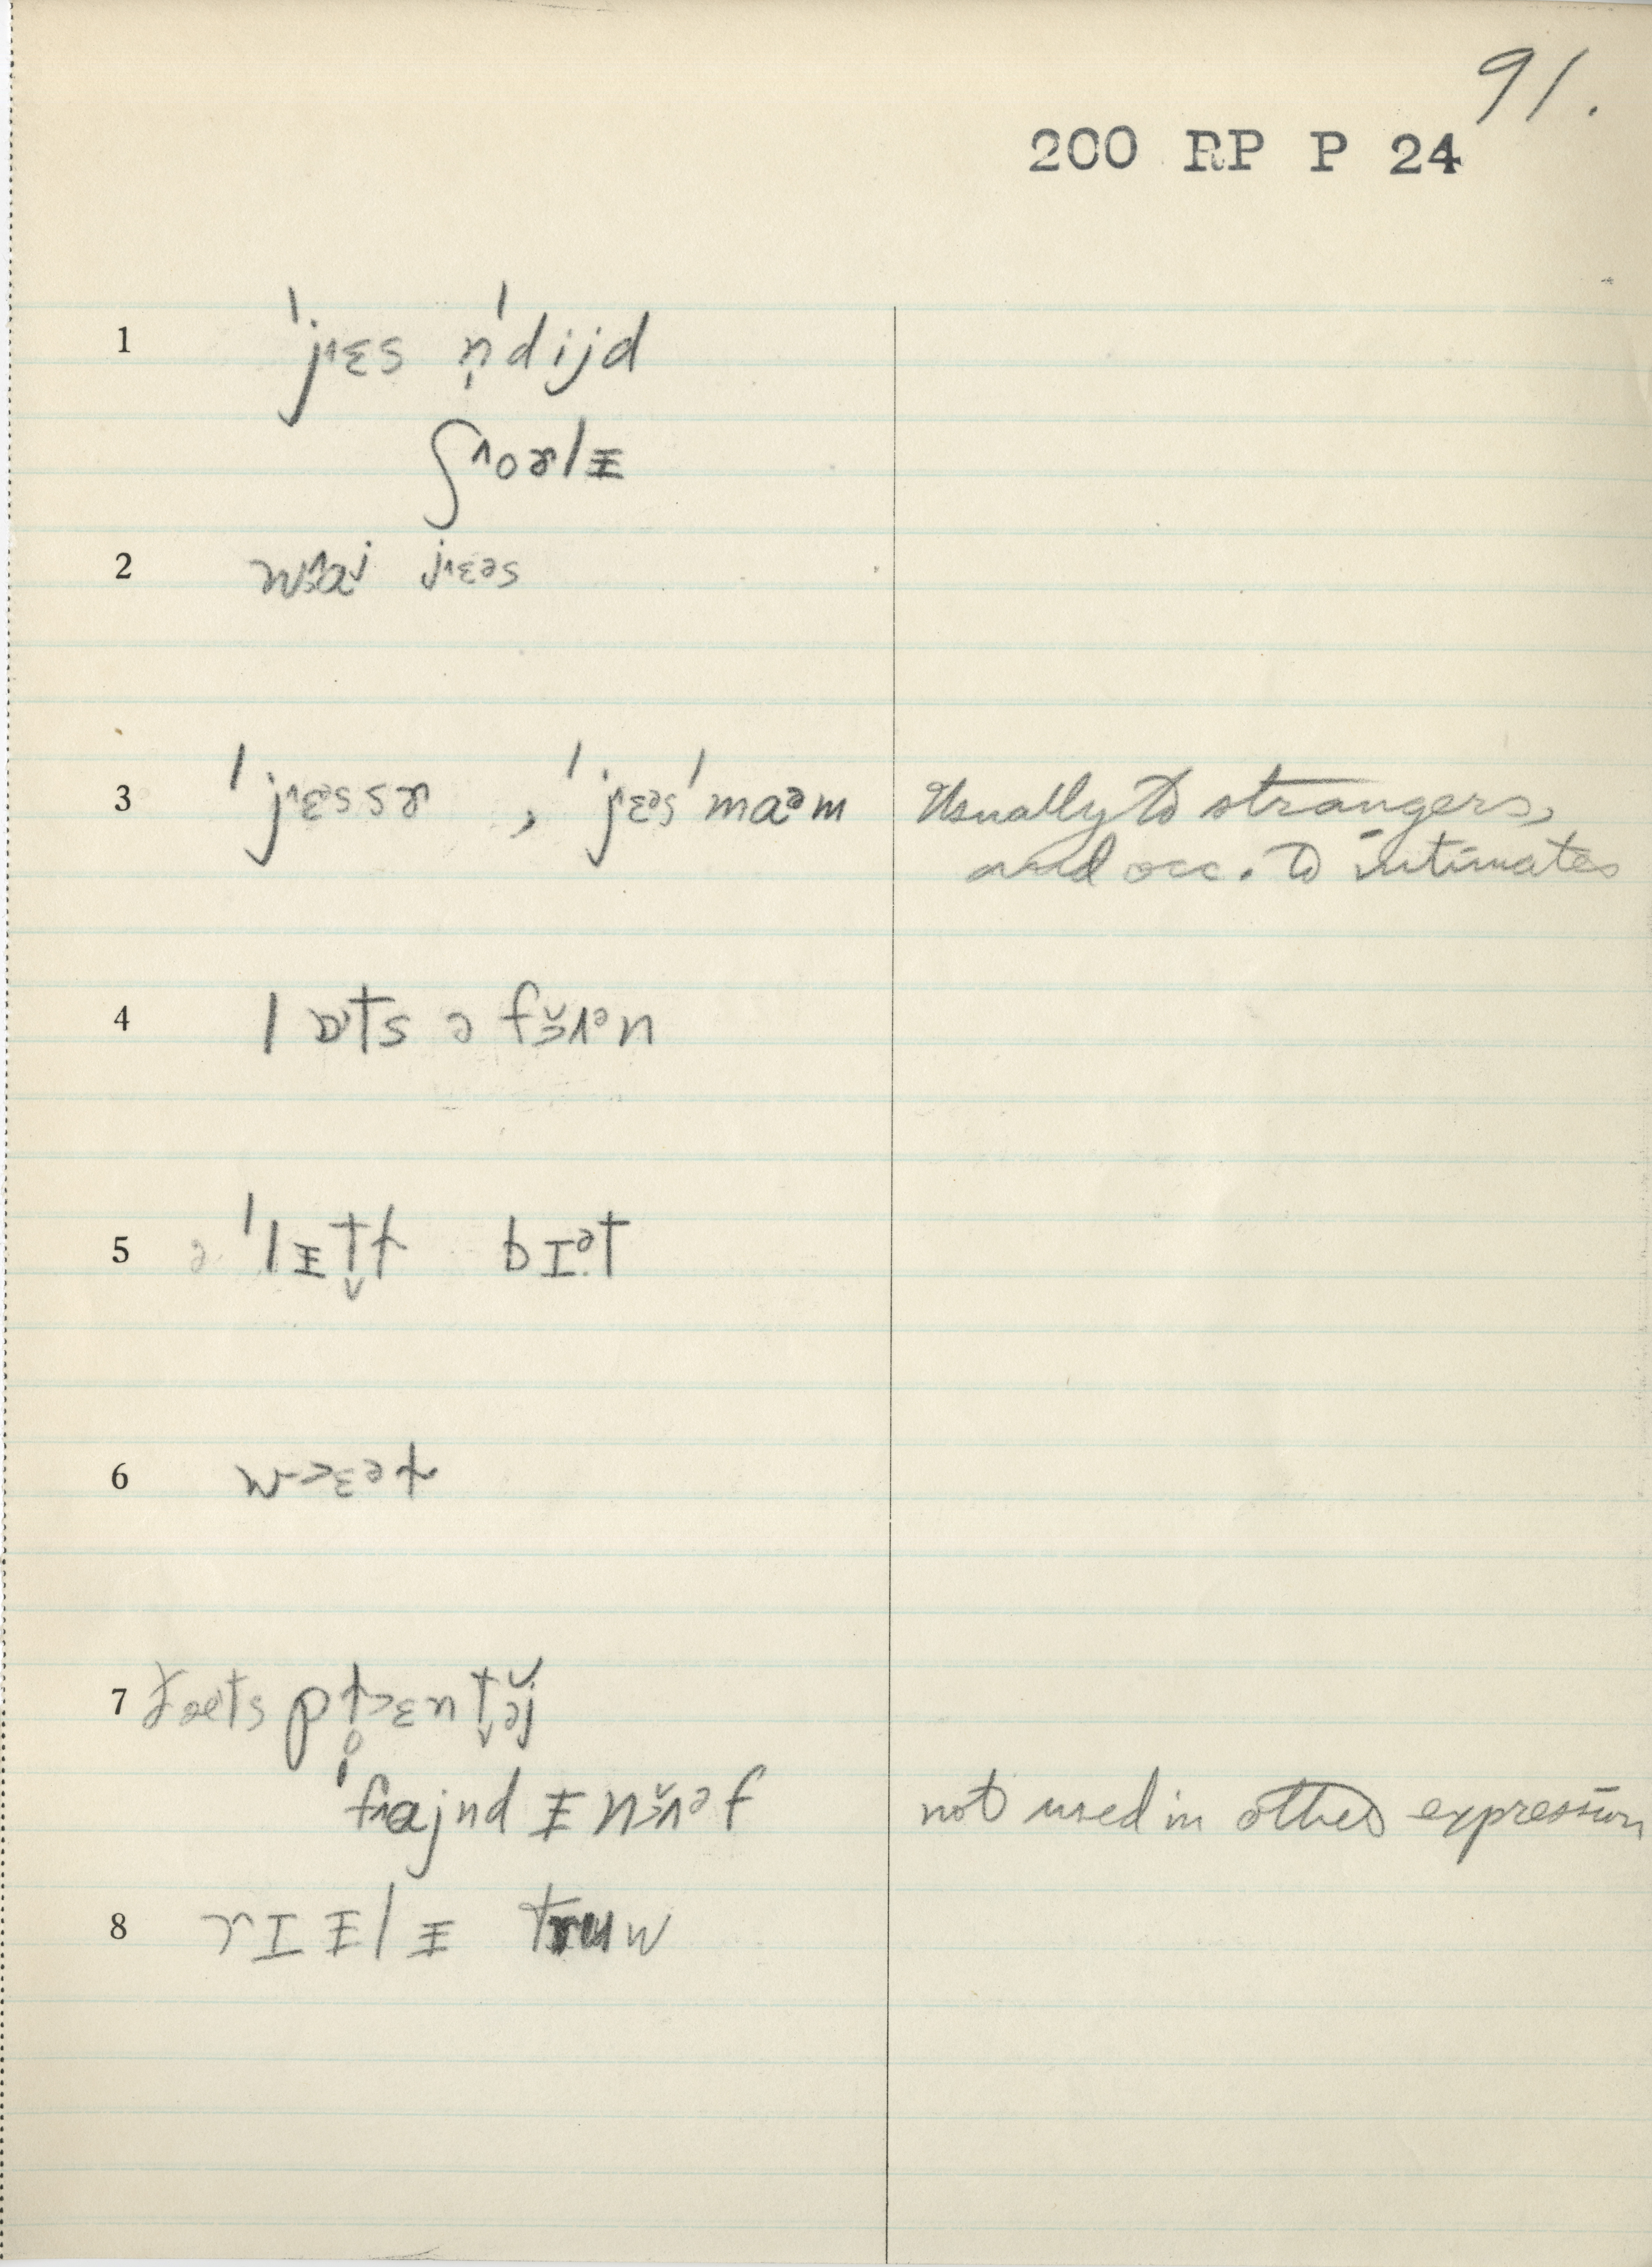 91.
200 RP P 24
1 ˈjɛs n̩ˈdijd
ʃoɚlɪ
2 waj jɛəs
3 ˈjɛəssɚ , ˈjɛəsˈmaəm Usually to strangers,
and occ. to intimates
4 lɒts ə fʌən
5 əˈlɪt̬ɫ bɪət
6 wɛəɫ
7 ðæts pl̥ɛnt̬ɪj
ˈfajnd ɪnʌəf not used in other expression
8 rɪɪlɪ truw